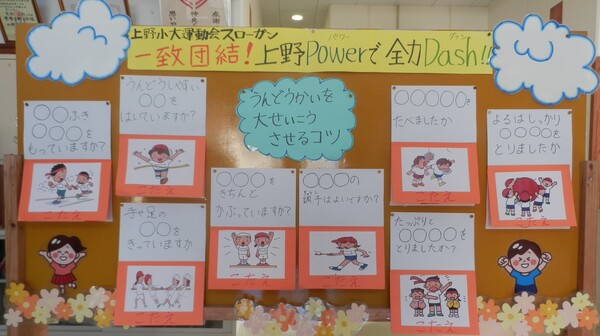 上野小大運動会スローガン
一致団結！上野Powerで全力Dash!!
パワー
ダッシュ
うんどうかいを
大せいこう
させるコツ
○○ふき
○○○を
もっていますか？
こたえ
うんどうしやすい
○○を
はいていますか？
こたえ
手や足の
○○を
きっていますか
こたえ
○○○を
きちんと
かぶっていますか？
こたえ
○○○の
調子はよいですか？
こたえ
○○○○○を
たべましたか
こたえ
たっぷりと
○○○○を
とりましたか？
こたえ
よるはしっかり
○○○○を
とりましたか
こたえ
感謝